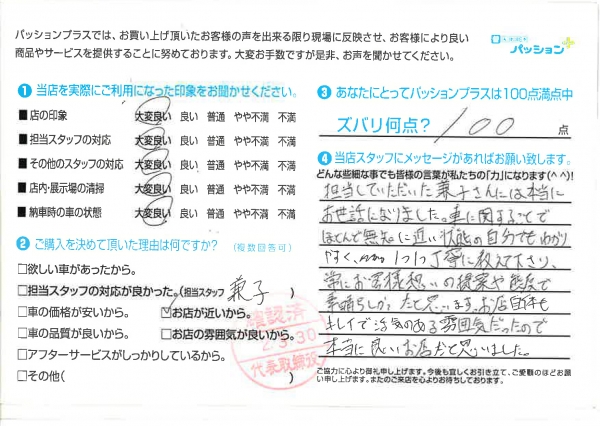 パッションプラスでは、お買い上げ頂いたお客様の声を出来る限り現場に反映させ、お客様により良い
商品やサービスを提供することに努めております。大変お手数ですが是非、お声を聞かせてください。
パッション
1 当店を実際にご利用になった印象をお聞かせください。
■店の印象 大変良い 良い 普通 やや不満 不満
■担当スタッフの対応 大変良い 良い 普通 やや不満 不満
■その他のスタッフの対応 大変良い 良い 普通 やや不満 不満
■店内・展示場の清掃 大変良い 良い 普通 やや不満 不満
■納車時の車の状態 大変良い 良い 普通 やや不満 不満
2 ご購入を決めて頂いた理由は何ですか？ (複数回答可)
□欲しい車があったから。
□担当スタッフの対応が良かった。(担当スタッフ 兼子 )
□車の価格が安いから。 ☑お店が近いから。
□車の品質が良いから。 □お店の雰囲気が良いから。
□アフターサービスがしっかりしているから。
□その他( )
確認済
2.5.30
代表取締役
3 あなたにとってパッションプラスは100点満点中
ズバリ何点？ 100 点
4 当店スタッフにメッセージがあればお願い致します。
どんな些細な事でも皆様の言葉が私たちの「力」になります(^^)!
担当していただいた兼子さんには本当に
お世話になりました。車に関することで
ほとんど無知に近い状態の自分でもわかり
やすく、 1つ1つ丁寧に教えて下さり、
常にお客様想いの提案や態度で
素晴らしかったと思います。お店自体も
キレイで活気のある雰囲気だったので
本当に良いお店だと思いました。
ご協力に心より御礼申し上げます。今後も宜しくお引き立て、ご愛顧のほどお願
い申し上げます。またのご来店を心よりお待ちしております。